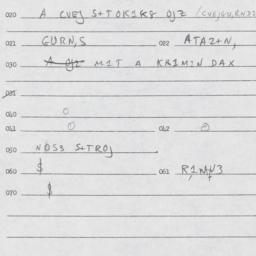 020 A CVEJ S+TOK1K8 OJZ /CVEJGU,RNDZ
021 GURN,S 022 ATAZ+N,
030 A OJZ M1T A KR1M1N DAX
031
040 O
041 O 042 O
050 NOS3 S+TROJ
060 $ 061 R1,MN3
070 $